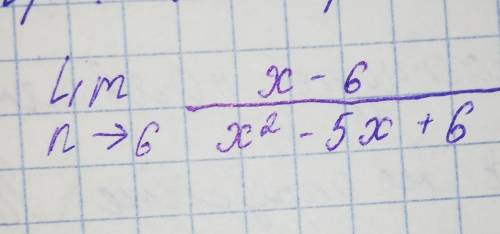 Lim x - 6
n → 6 x² - 5x + 6